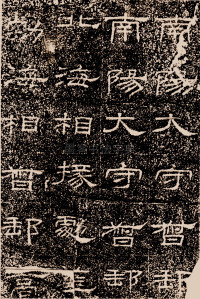 南陽大守督郵
南陽大守督郵
北海相掾
勃海相督郵